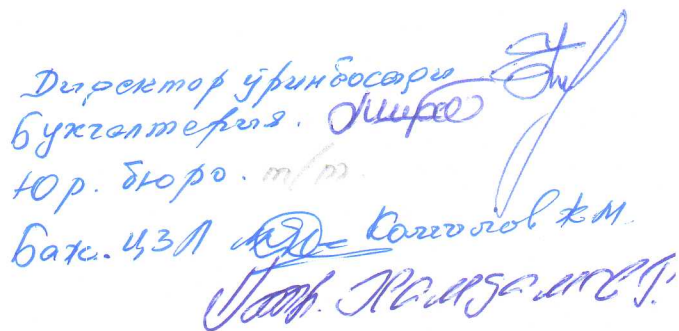 Директор ўринбосари
Бухгалтерия.
Юр. бюро. т/т.
Бак. ЦЗЛ Камолов Ж М.
Хамдамов Г.